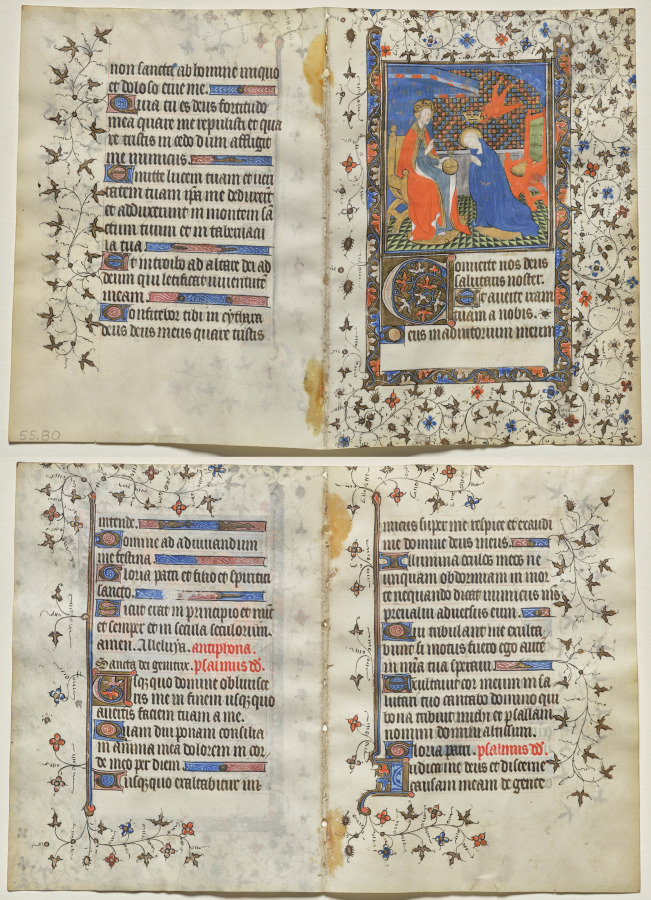 non sancta ab homine iniquo
et doloso erue me.
Quia tu es deus fortitudo
mea quare me repulisti et qua
re tristis incedo dum affligit
me inimicus.
Emitte lucem tuam et veri
tatem tuam ipa me deduxerut
et adduxerunt in montem sa
ctum tuum et in tabernacu
la tua.
Et introibo ad altare dei ad
deum qui letificat iuventute
meam.
Confitebor tibi in cythara
deus deus meus quare tristis
55.80
Converte nos deus
salutaris noster.
Et averte iram
tuam a nobis.
Deus in adiutorium meum
intende.
Domine ad adiuvandum
me festina.
Gloria patri et filio et spiritui
sancto.
Sicut erat in principio et nuc
et semper et in secula seculorum.
amen. Alleluya. antiphona.
Sancta dei genitrix. psalmus dd.
Usquequo domine oblivisce
ris me in finem usquequo
avertis faciem tuam a me.
Quam diu ponam consilia
in anima mea dolorem in cor
de meo per diem.
Usquequo exaltabitur ini
micus super me respice et exaudi
me domine deus meus.
Illumina oculos meos ne
unquam obdormiam in mor
te nequando dicat inimicus ms
prevalui adversus eum.
Qui tribulant me exulta
bunt si motus fuero ego aute
in mia tua speravi.
Exultavit cor meum in sa
lutari tuo cantabo domino qui
bona tribuit michi et psallam
nomini domini altissimi.
Gloria patri. psalmus dd.
Iudica me deus et discerne
causam meam de gente